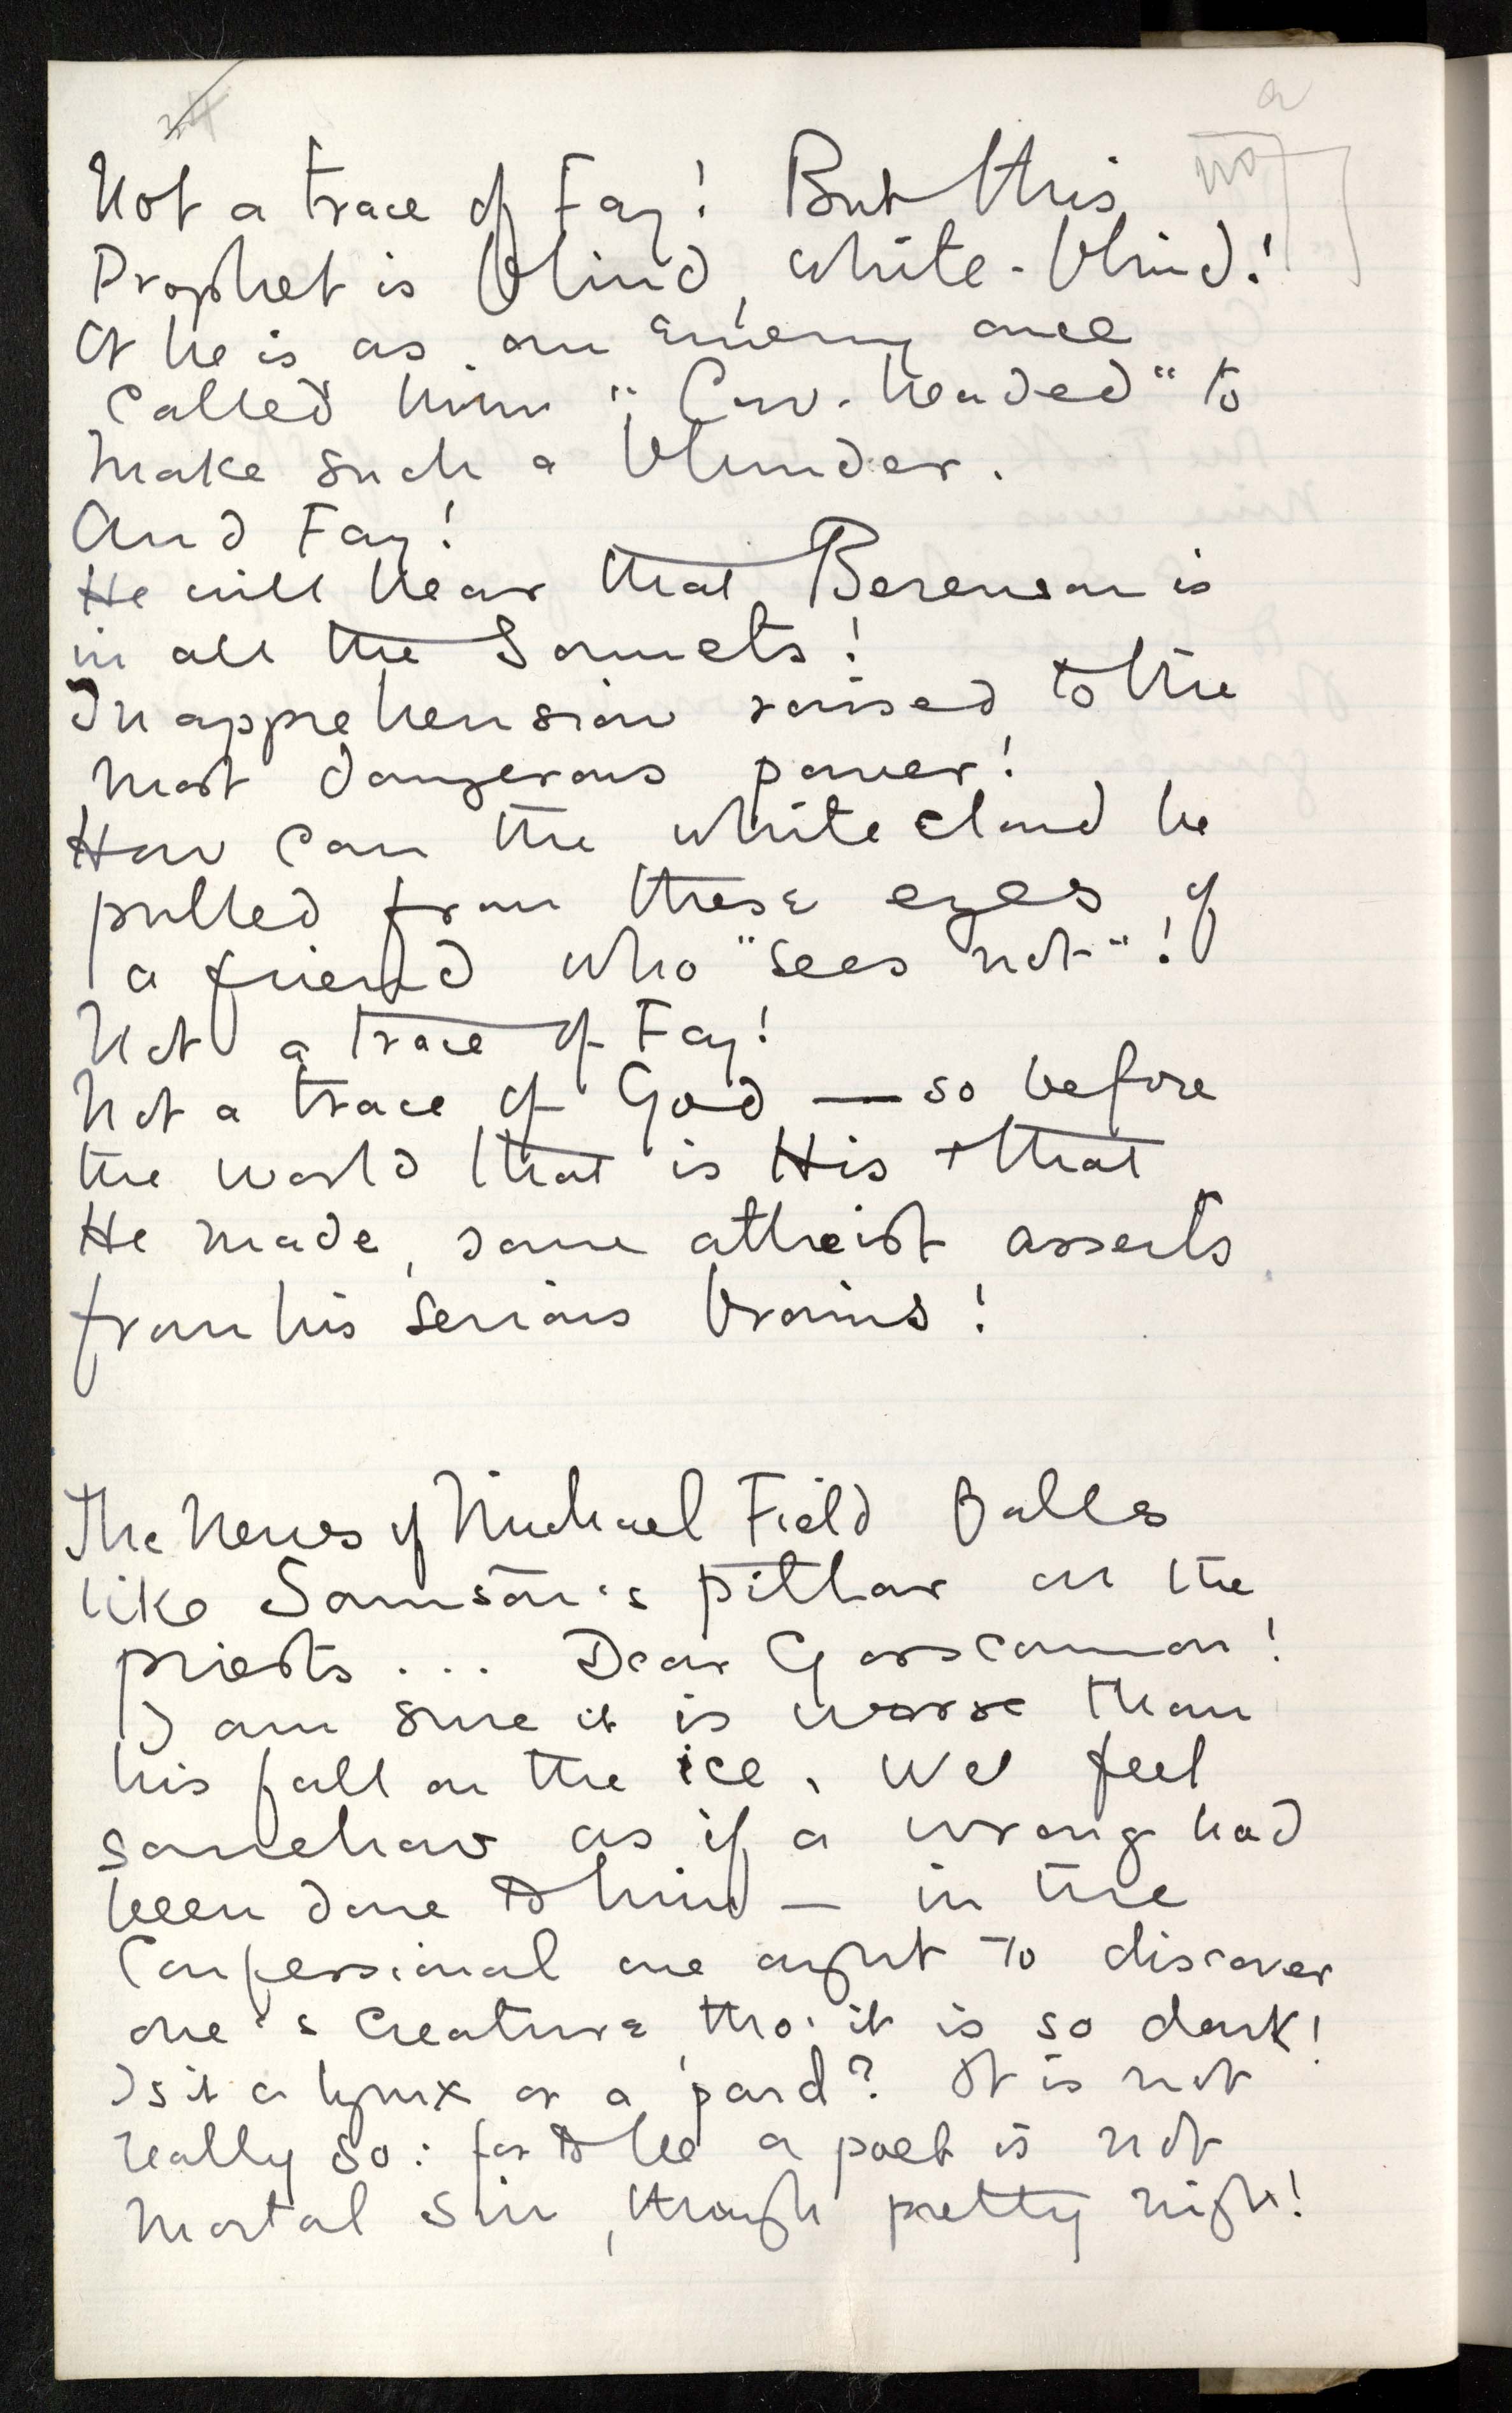 Not a trace of Fay! But this
Prophet is blind, white-blind!
Or he is as an enemy once
called him "Cow-headed" to
make such a blunder.
And Fay!
He will hear that Berenson is
in all the Sonnets!
Inapprehension raised to the
most dangerous power!
How can the white cloud be
pulled from these eyes of
a friend who "sees not"!
Not a trace of Fay!
Not a trace of God — so before
the world that is His + that
He made, some atheist asserts
from his serious brains!
The News of Michael Field falls
like Samson's pillar on the
priests ... Dear Goscannon!
I am sure it is worse than
his fall on the ice. We feel
somehow as if a wrong had
been done to him — in the
Confessional one ought to discover
one's creature, tho' it is so dark!
Is it a lynx or a pard? It is not
really so: for to be a poet is not
mortal sin, though pretty nigh!